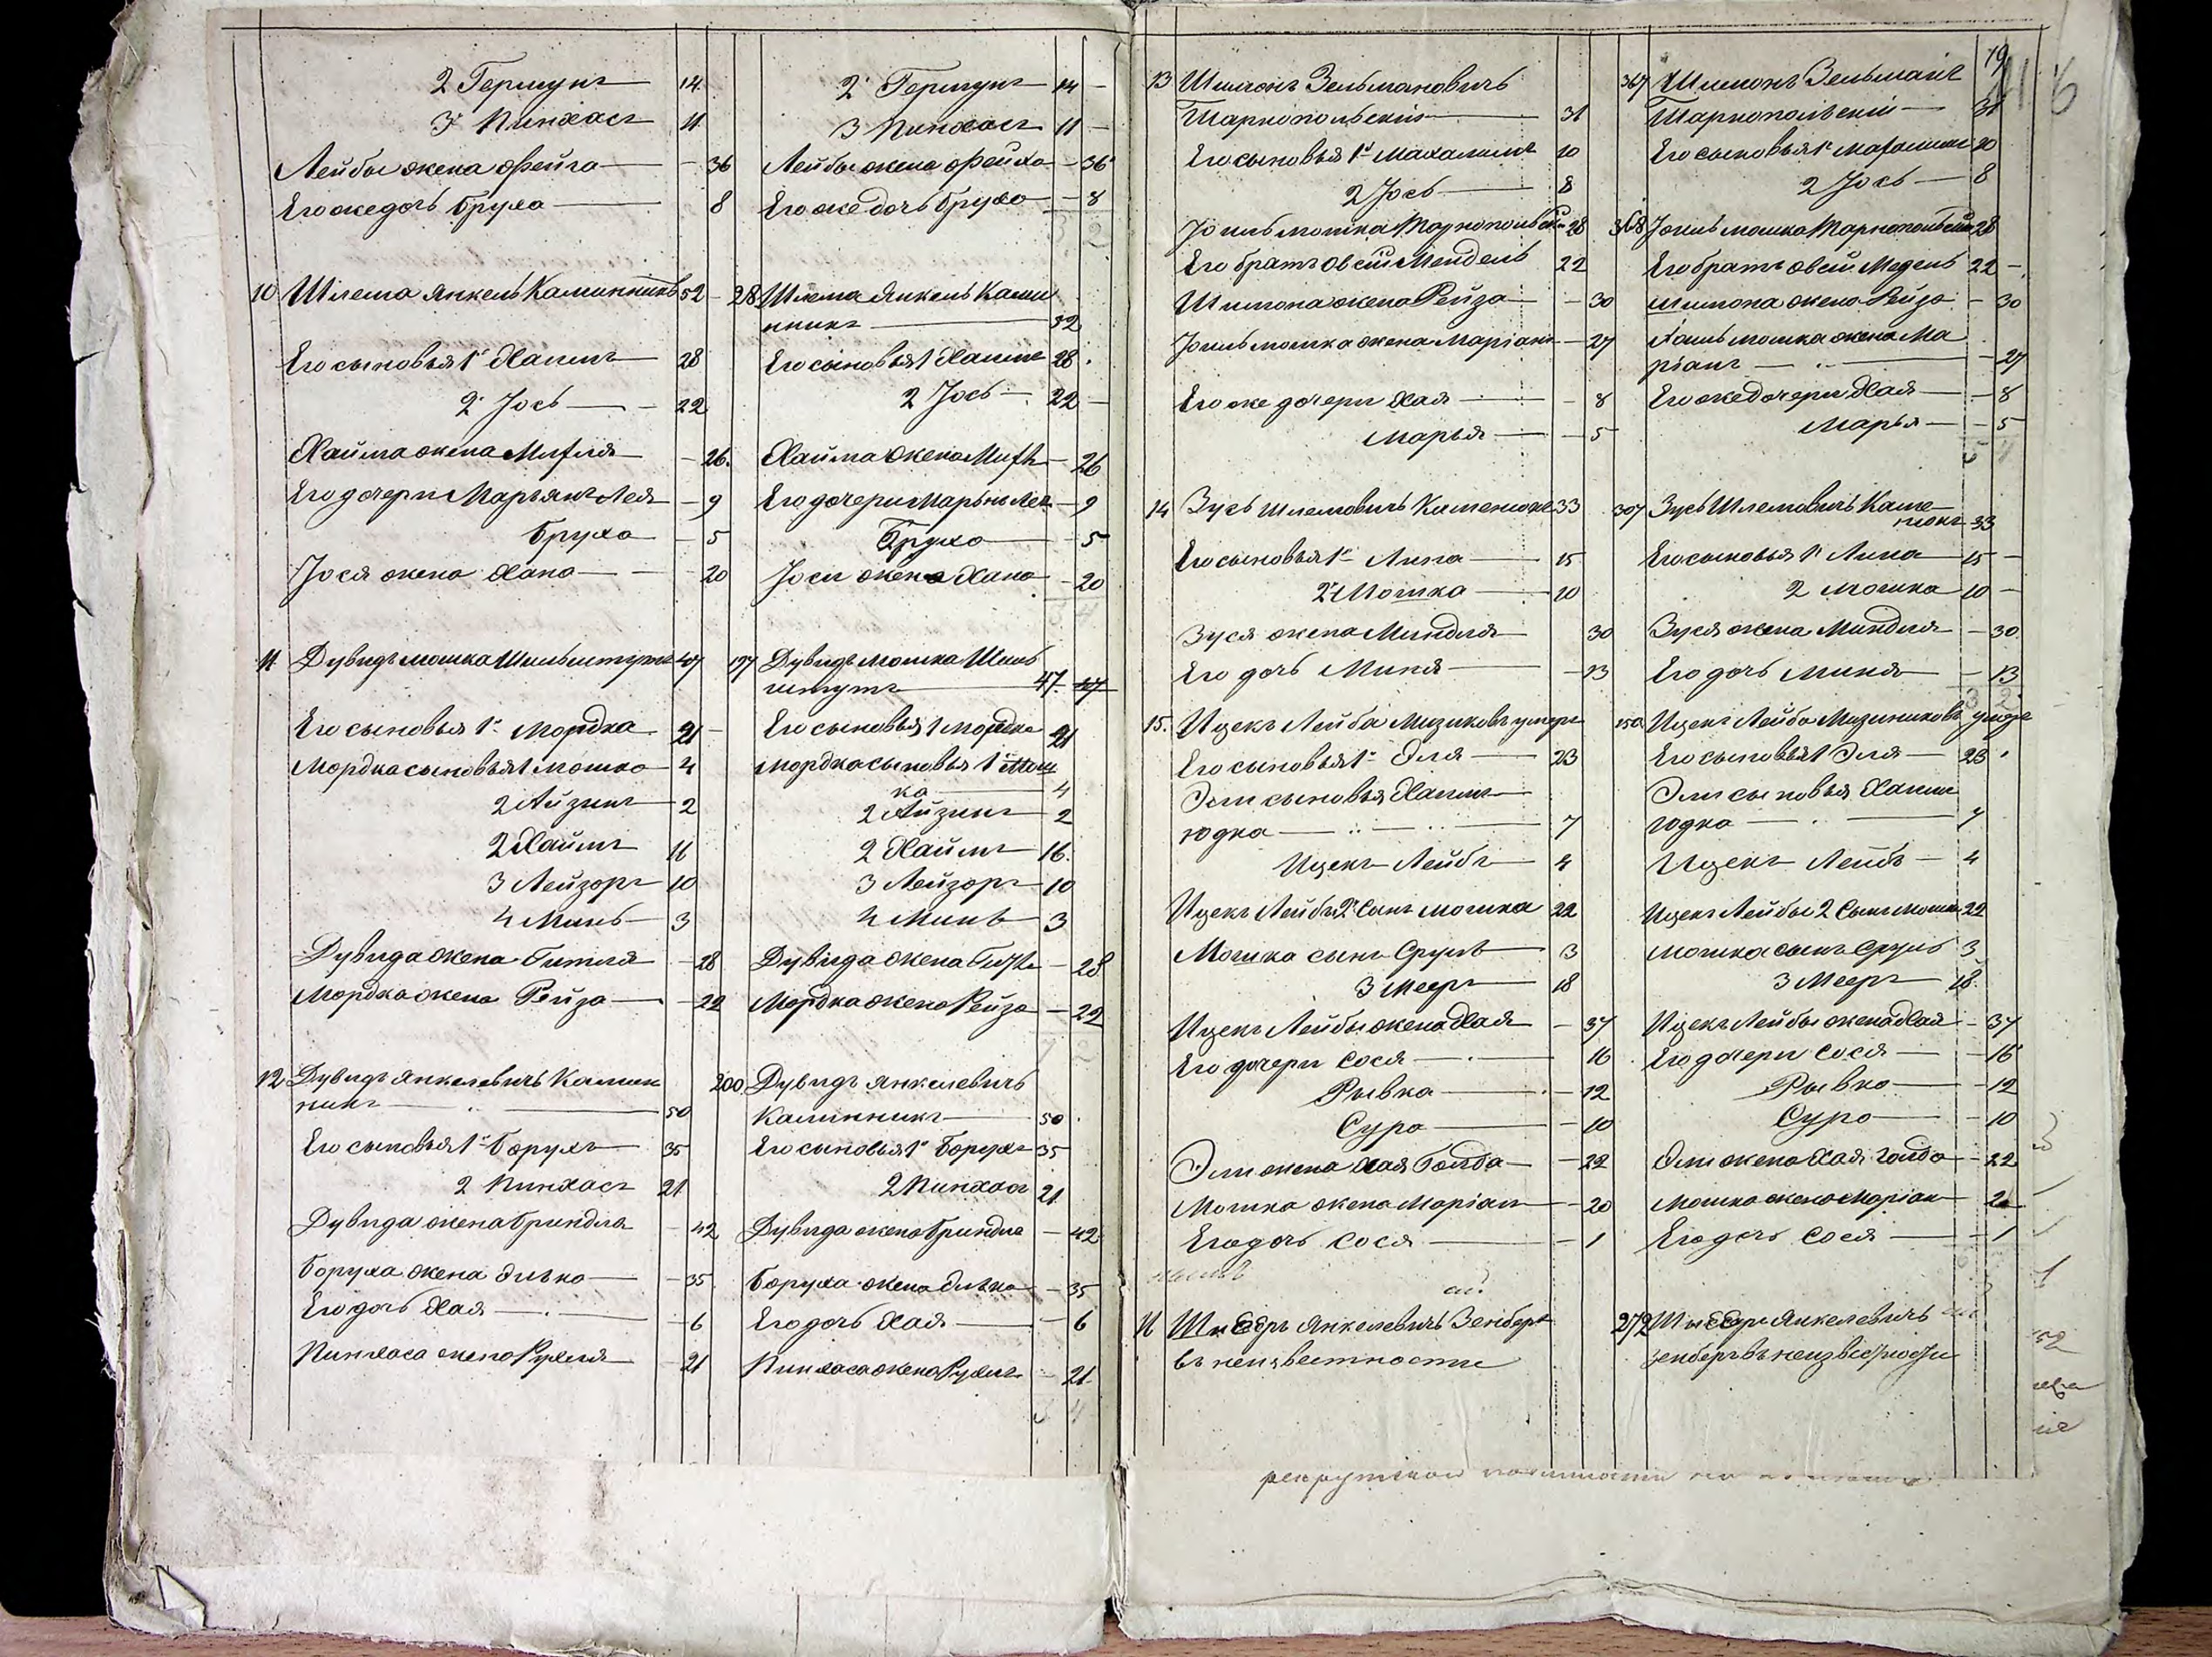 2 Гершунъ 14.
3 Пинхасъ 11
Лейбы жена Фейга — 36
Его же дочь Бруха 8
10 Шлема Янкель Калинникъ 52 —
Его сыновья 1й Хаимъ 28
2й Іось 22
Хаима жена Митля — 26.
Его дочери Марьямъ Лея — 9
Бруха — 5
Іося жена Хана — 20
11 Дувидъ Мошка 47
Его сыновья 1й Мордка 21 —
Мордка сыновья 1 Мошко 4
2 Айзикъ 2
2 Хаимъ 16
3 Лейзоръ 10
4 3
Дувида жена Гитля — 28
Мордка жена Рейза — 22
12 Дувидъ Янкелевичъ Калин
никъ 50
Его сыновья 1й Борухъ 35
2 Пинхасъ 21
Дувида жена Бриндла — 42
Боруха жена Элько — 35
Его дочь Хая — 6
Пинхаса жена Рухля — 21
2 Гершунъ 14 —
3 Пинхасъ 11 —
Лейбы жена Фейга — 36
Его же дочь Бруха — 8
28 Шлема Янкель Кали
нникъ 52
Его сыновья 1 Хаимъ 28.
2 Іось 22 —
Хаима жена — 26
Его дочери Лея — 9
Бруха — 5
Іоси жена Хана — 20
197 Дувидъ Мошка
47. 47
Его сыновья 1 Мордка 21
Мордка сыновья 1й Мош
ка 4
2 Айзикъ 2
2 Хаимъ 16.
3 Лейзоръ 10
4 3
Дувида жена — 28
Мордка жена Рейза — 22
200 Дувидъ Янкелевичъ
Калинникъ 50.
Его сыновья 1й Борухъ 35
2 Пинхасъ 21
Дувида жена Бриндла — 42
Боруха жена Элько — 35
Его дочь Хая — 6
Пинхаса жена Рухля — 21
13 Шимонъ Зельмановичъ
Тарнопольскій 31
Его сыновья 1й 10
2 Іось 8
Мошка Тарнопольскій 28
Его братъ Овсій Мендель 22
Шимона жена Рейза — 30
Мошка жена Маріамъ — 27
Его же дочери Хая — 8
Марья — 5
14 Зусь Шлемовичъ 33
Его сыновья 1й Липа 15
2й Мошка 10
Зуся жена Миндля 30
Его дочь Миня — 13
15. Ицекъ Лейба умеръ
Его сыновья 1й Эля 23
Эли сыновья Хаимъ
Юдка 7
Ицекъ Лейбъ 4
Ицекъ Лейбы 2й сынъ Мошка 22
Мошка сынъ Сруль 3
3 Мееръ 18
Ицекъ Лейбы жена Хая — 37
Его дочери Сося 16
Рывка — 12
Сура — 10
Эли жена Хая Голда — 22
Мошка жена Маріам — 20
Его дочь Сося — 1
16 Янкелевичъ Зенбергъ
въ неизвестности
19
6
367 Шимонъ Зельманъ
Тарнопольскій 31
Его сыновья 1й 10
2 Іось 8
368 Мошка Тарнопольскій 28
Его братъ Овсій 22 —
Шимона жена Рейза — 30
Мошка жена Ма
ріамъ — 27
Его же дочери Хая — 8
Марья — 5
307 Зусь Шлемовичъ
33
Его сыновья 1й Липа 15 —
2 Мошка 10 —
Зуся жена Миндля — 30
Его дочь Миня — 13
150 Ицекъ Лейба умеръ
Его сыновья 1 Эля 23
Эли сыновья Хаимъ
Юдка 7
Ицекъ Лейбъ — 4
Ицекъ Лейбы 2 сынъ Мошка 22
Мошка сынъ Сруль 3
3 Мееръ 18.
Ицекъ Лейбы жена Хая — 37
Его дочери Сося — 16
Рывка — 12
Сура — 10
Эли жена Хая Голда — 22
Мошка жена Маріам — 20
Его дочь Сося — 1
272 Янкелевичъ
Зенбергъ въ неизвестности
52
рекрутской